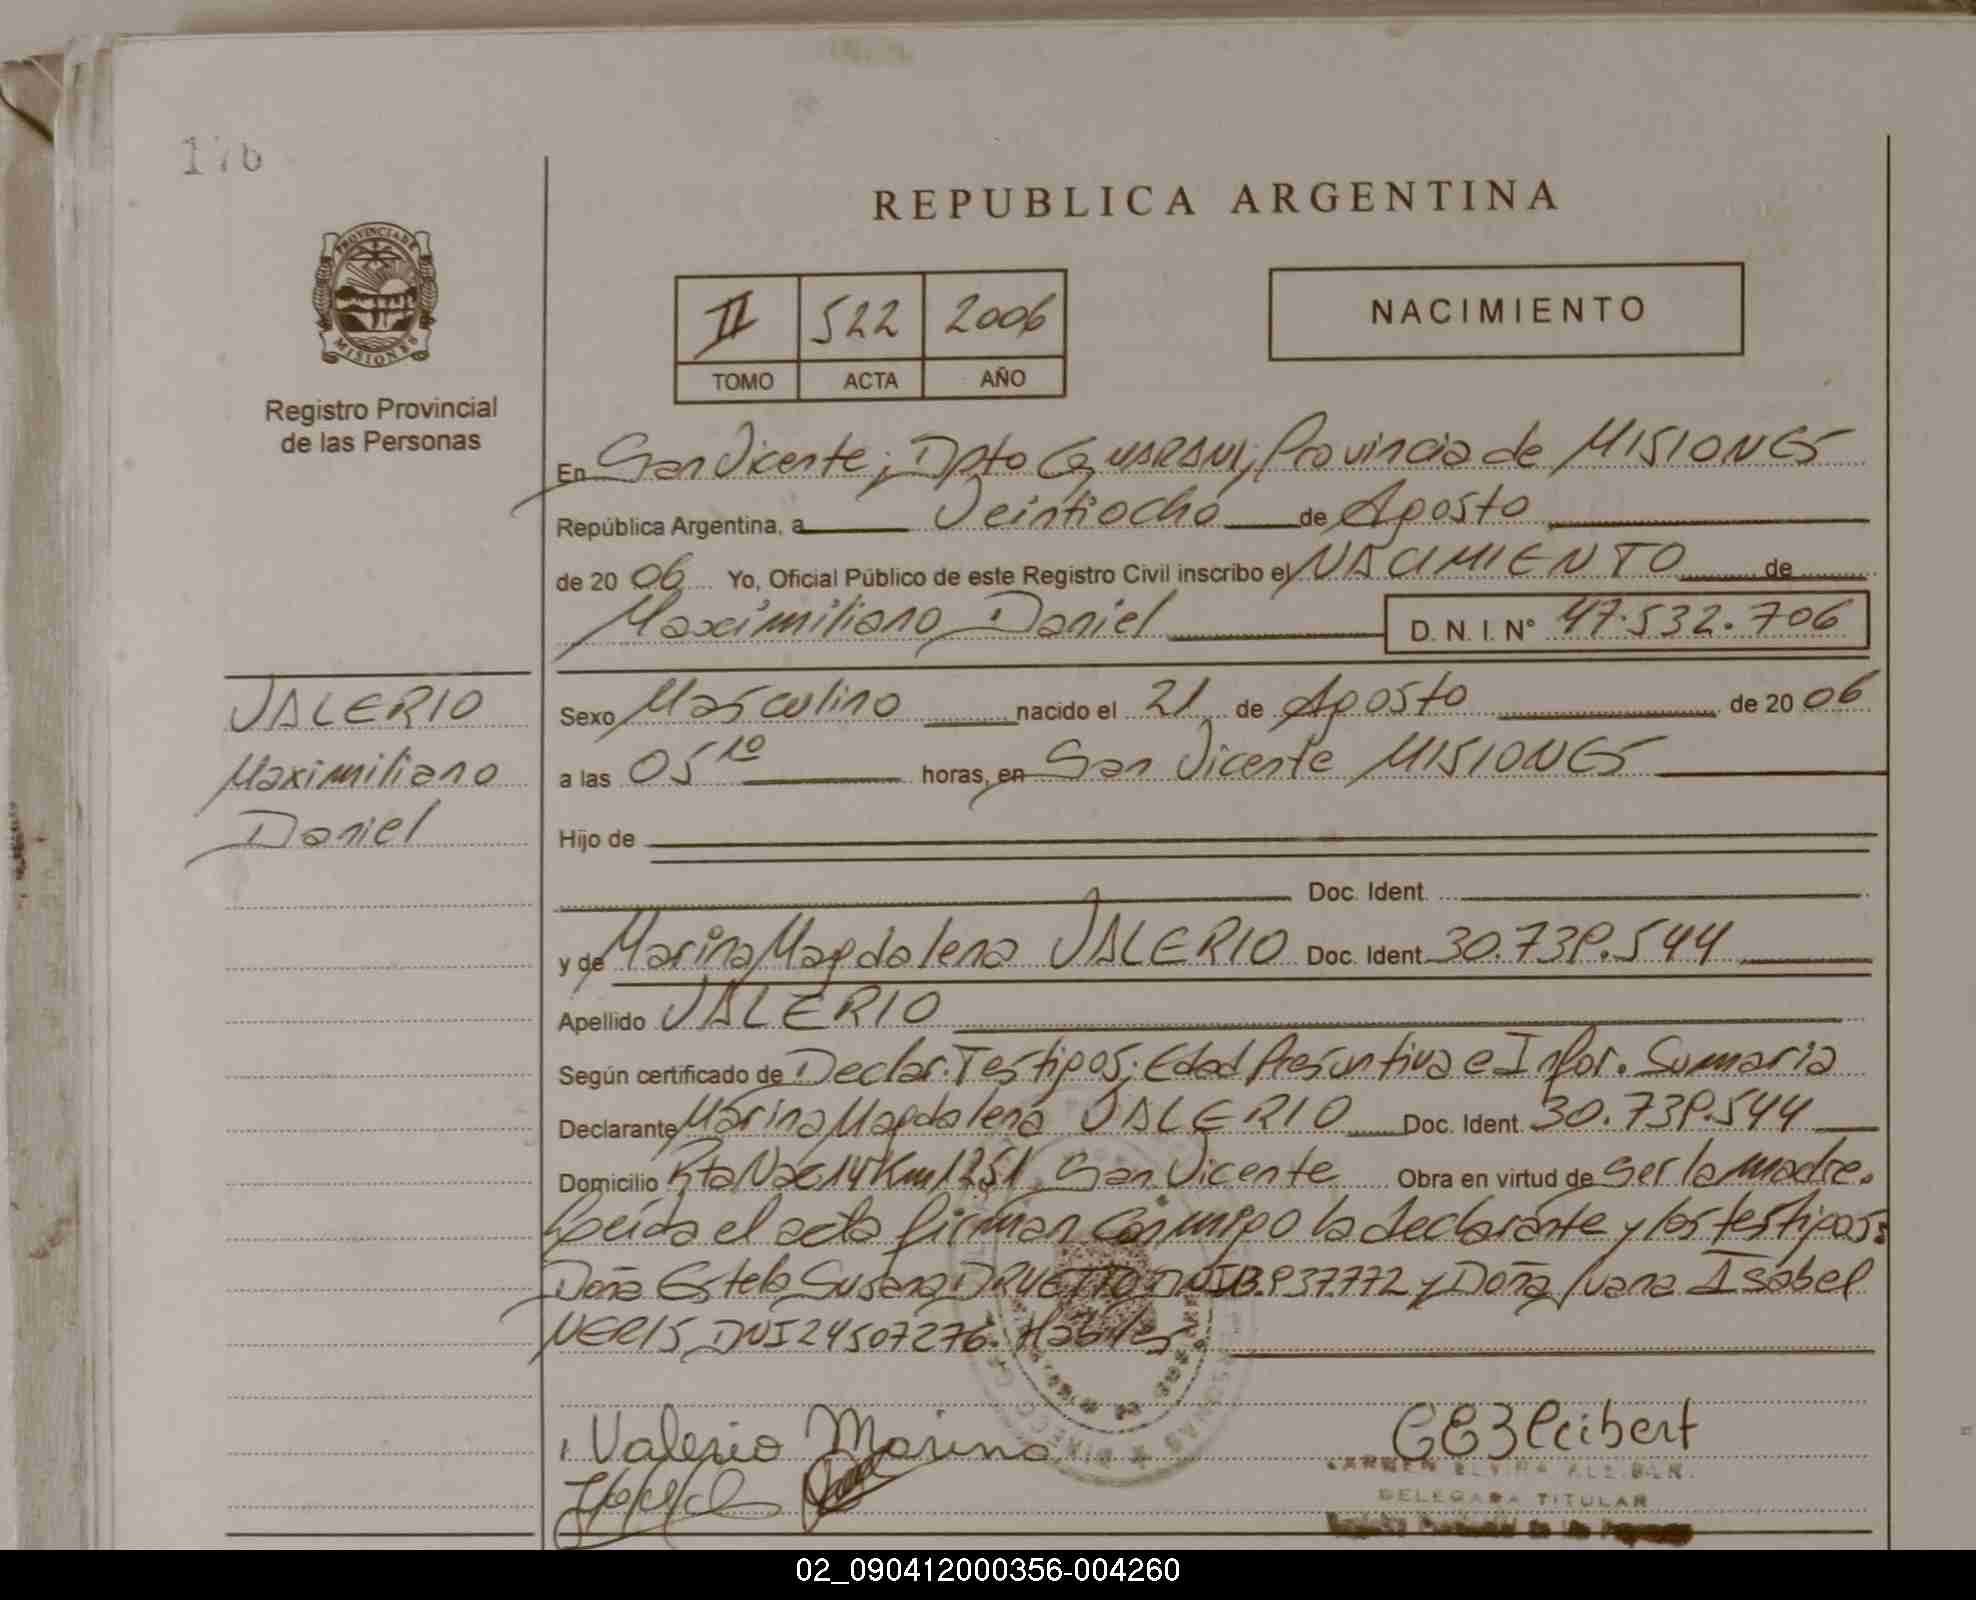 REPUBLICA ARGENTINA
PROVINCIA DE
MISIONES
Registro Provincial
de las Personas
II 522 2006
TOMO ACTA AÑO
NACIMIENTO
En San Vicente; Dpto GUARANI; Provincia de MISIONES
República Argentina, a Veintiocho de Agosto
de 20 06 Yo, Oficial Público de este Registro Civil inscribo el NACIMIENTO de
Maximiliano Daniel D. N. I. N° 47.532.706
VALERIO
Maximiliano
Daniel
Sexo Masculino nacido el 21 de Agosto de 20 06
a las 05 10 horas, en San Vicente MISIONES
Hijo de
Doc. Ident.
y de Marina Magdalena VALERIO Doc. Ident. 30.739.544
Apellido VALERIO
Según certificado de Declar. Testigos; Edad Presuntiva e Infor. Sumaria
Declarante Marina Magdalena VALERIO Doc. Ident. 30.739.544
Domicilio Rta Nac 14 Km 1251 San Vicente Obra en virtud de ser la madre.
Leída el acta firman conmigo la declarante y los testigos:
Doña Estela Susana DRUETTO DNI 13.937.772 y Doña Juana Isabel
NERIS, DNI 24507276. Hábiles
Valerio Marina
DELEGADA TITULAR
02_090412000356-004260